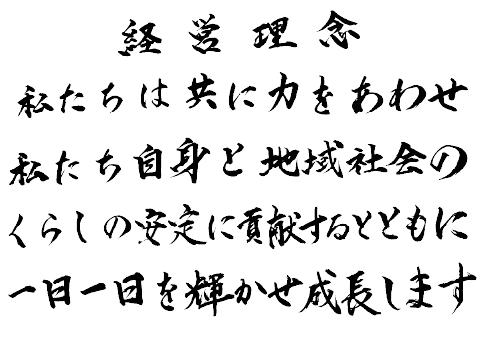 経営理念
私たちは共に力をあわせ
私たち自身と地域社会の
くらしの安定に貢献するとともに
一日一日を輝かせ成長します